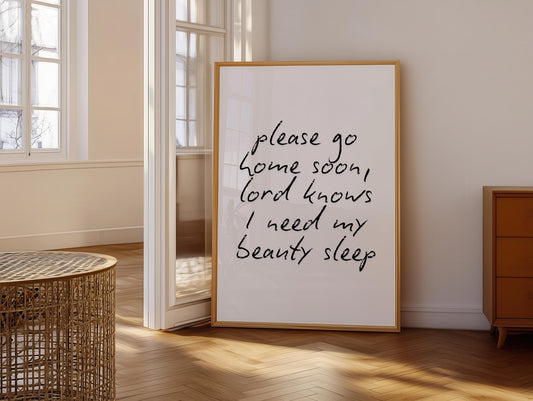 please go
home soon,
lord knows
I need my
beauty sleep